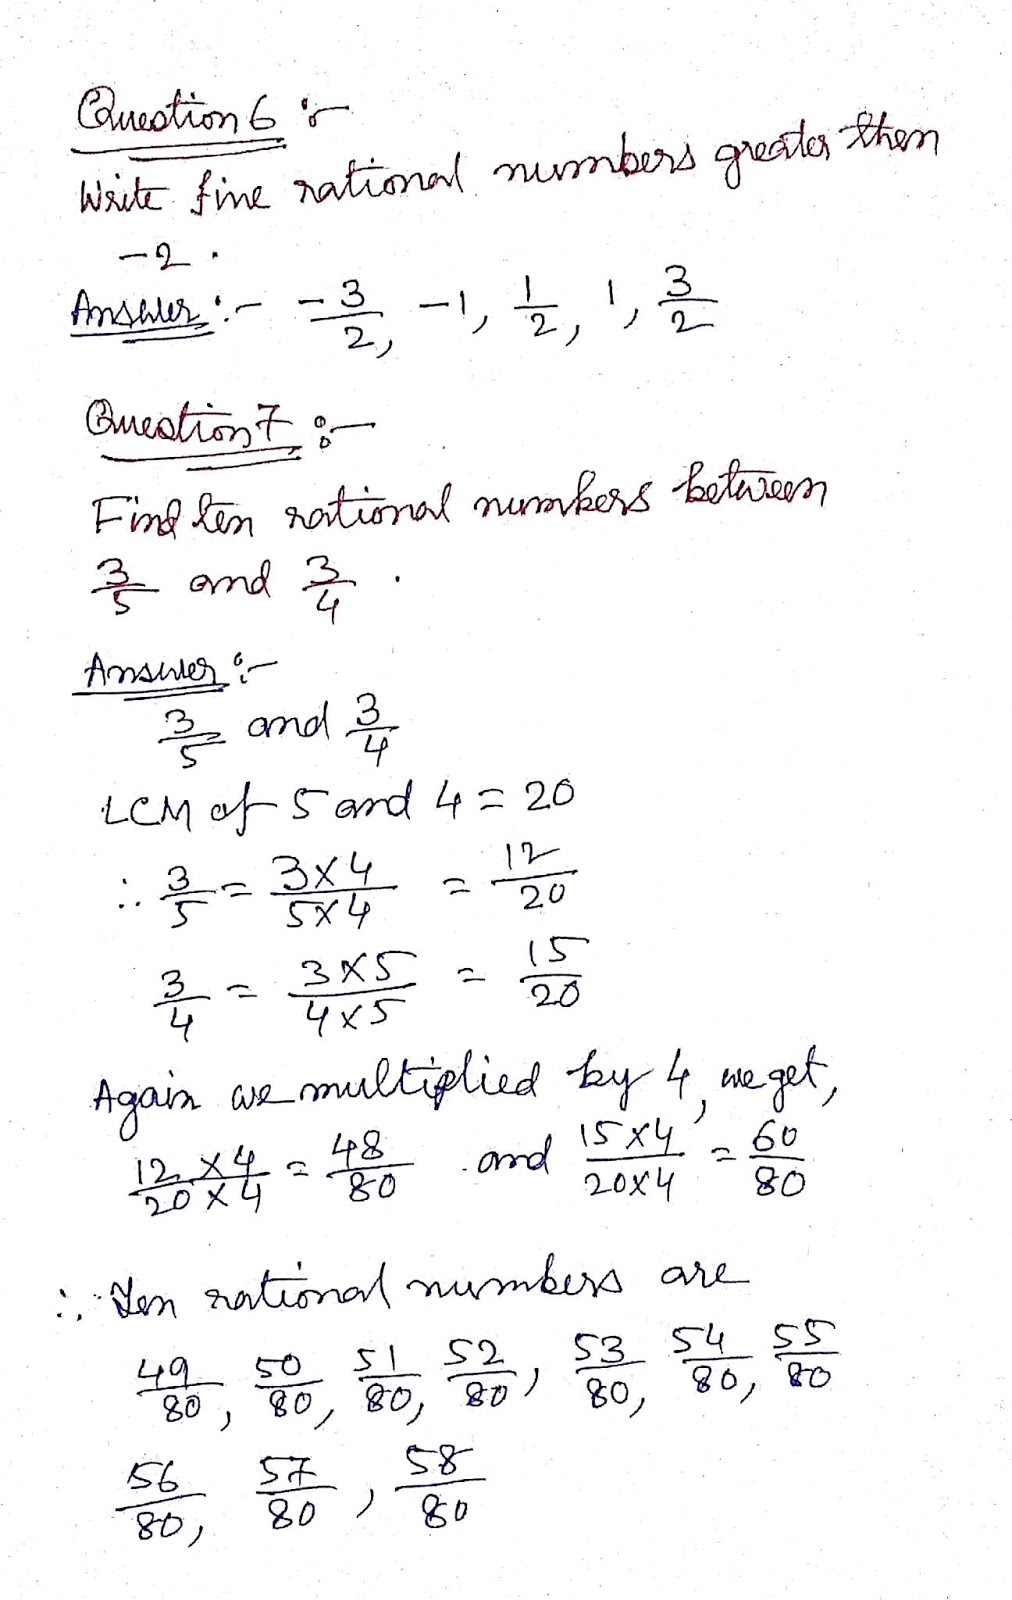 Question 6 :-
Write five rational numbers greater then
-2 .
Answer :- -3/2, -1, 1/2, 1, 3/2
Question 7 :-
Find ten rational numbers between
3/5 and 3/4 .
Answer :-
3/5 and 3/4
LCM of 5 and 4 = 20
∴ 3/5 = 3×4/5×4 = 12/20
3/4 = 3×5/4×5 = 15/20
Again we multiplied by 4, we get,
12×4/20×4 = 48/80 and 15×4/20×4 = 60/80
∴ Ten rational numbers are
49/80, 50/80, 51/80, 52/80, 53/80, 54/80, 55/80
56/80, 57/80, 58/80